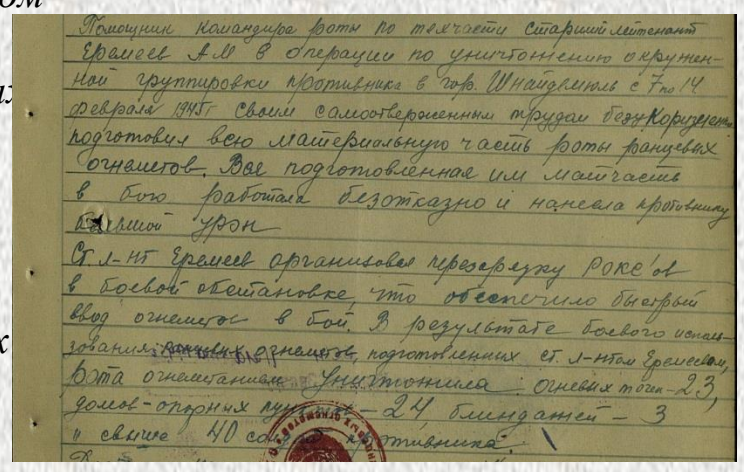 ом
Помощник командира роты по техчасти старший лейтенант
Еремеев А.М в операции по уничтожению окружен-
ной группировки противника в гор. Шнайдемюль с 7 по 14
февраля 1945г своим самоотверженным трудом
подготовил всю материальную часть роты ранцевых
огнеметов. Вся подготовленная им матчасть
в бою работала безотказно и нанесла противнику
большой урон
Ст. л-нт Еремеев организовал перезарядку РОКС'ов
в боевой обстановке, что обеспечило быстрый
ввод огнеметов в бой. В результате боевого исполь-
к
зования огнеметов, подготовленных ст. л-нтом Еремеевым,
рота огнеметанием уничтожила: огневых точек-23,
домов-опорных пунктов-24, блиндажей-3
и свыше 40 солдат противника.